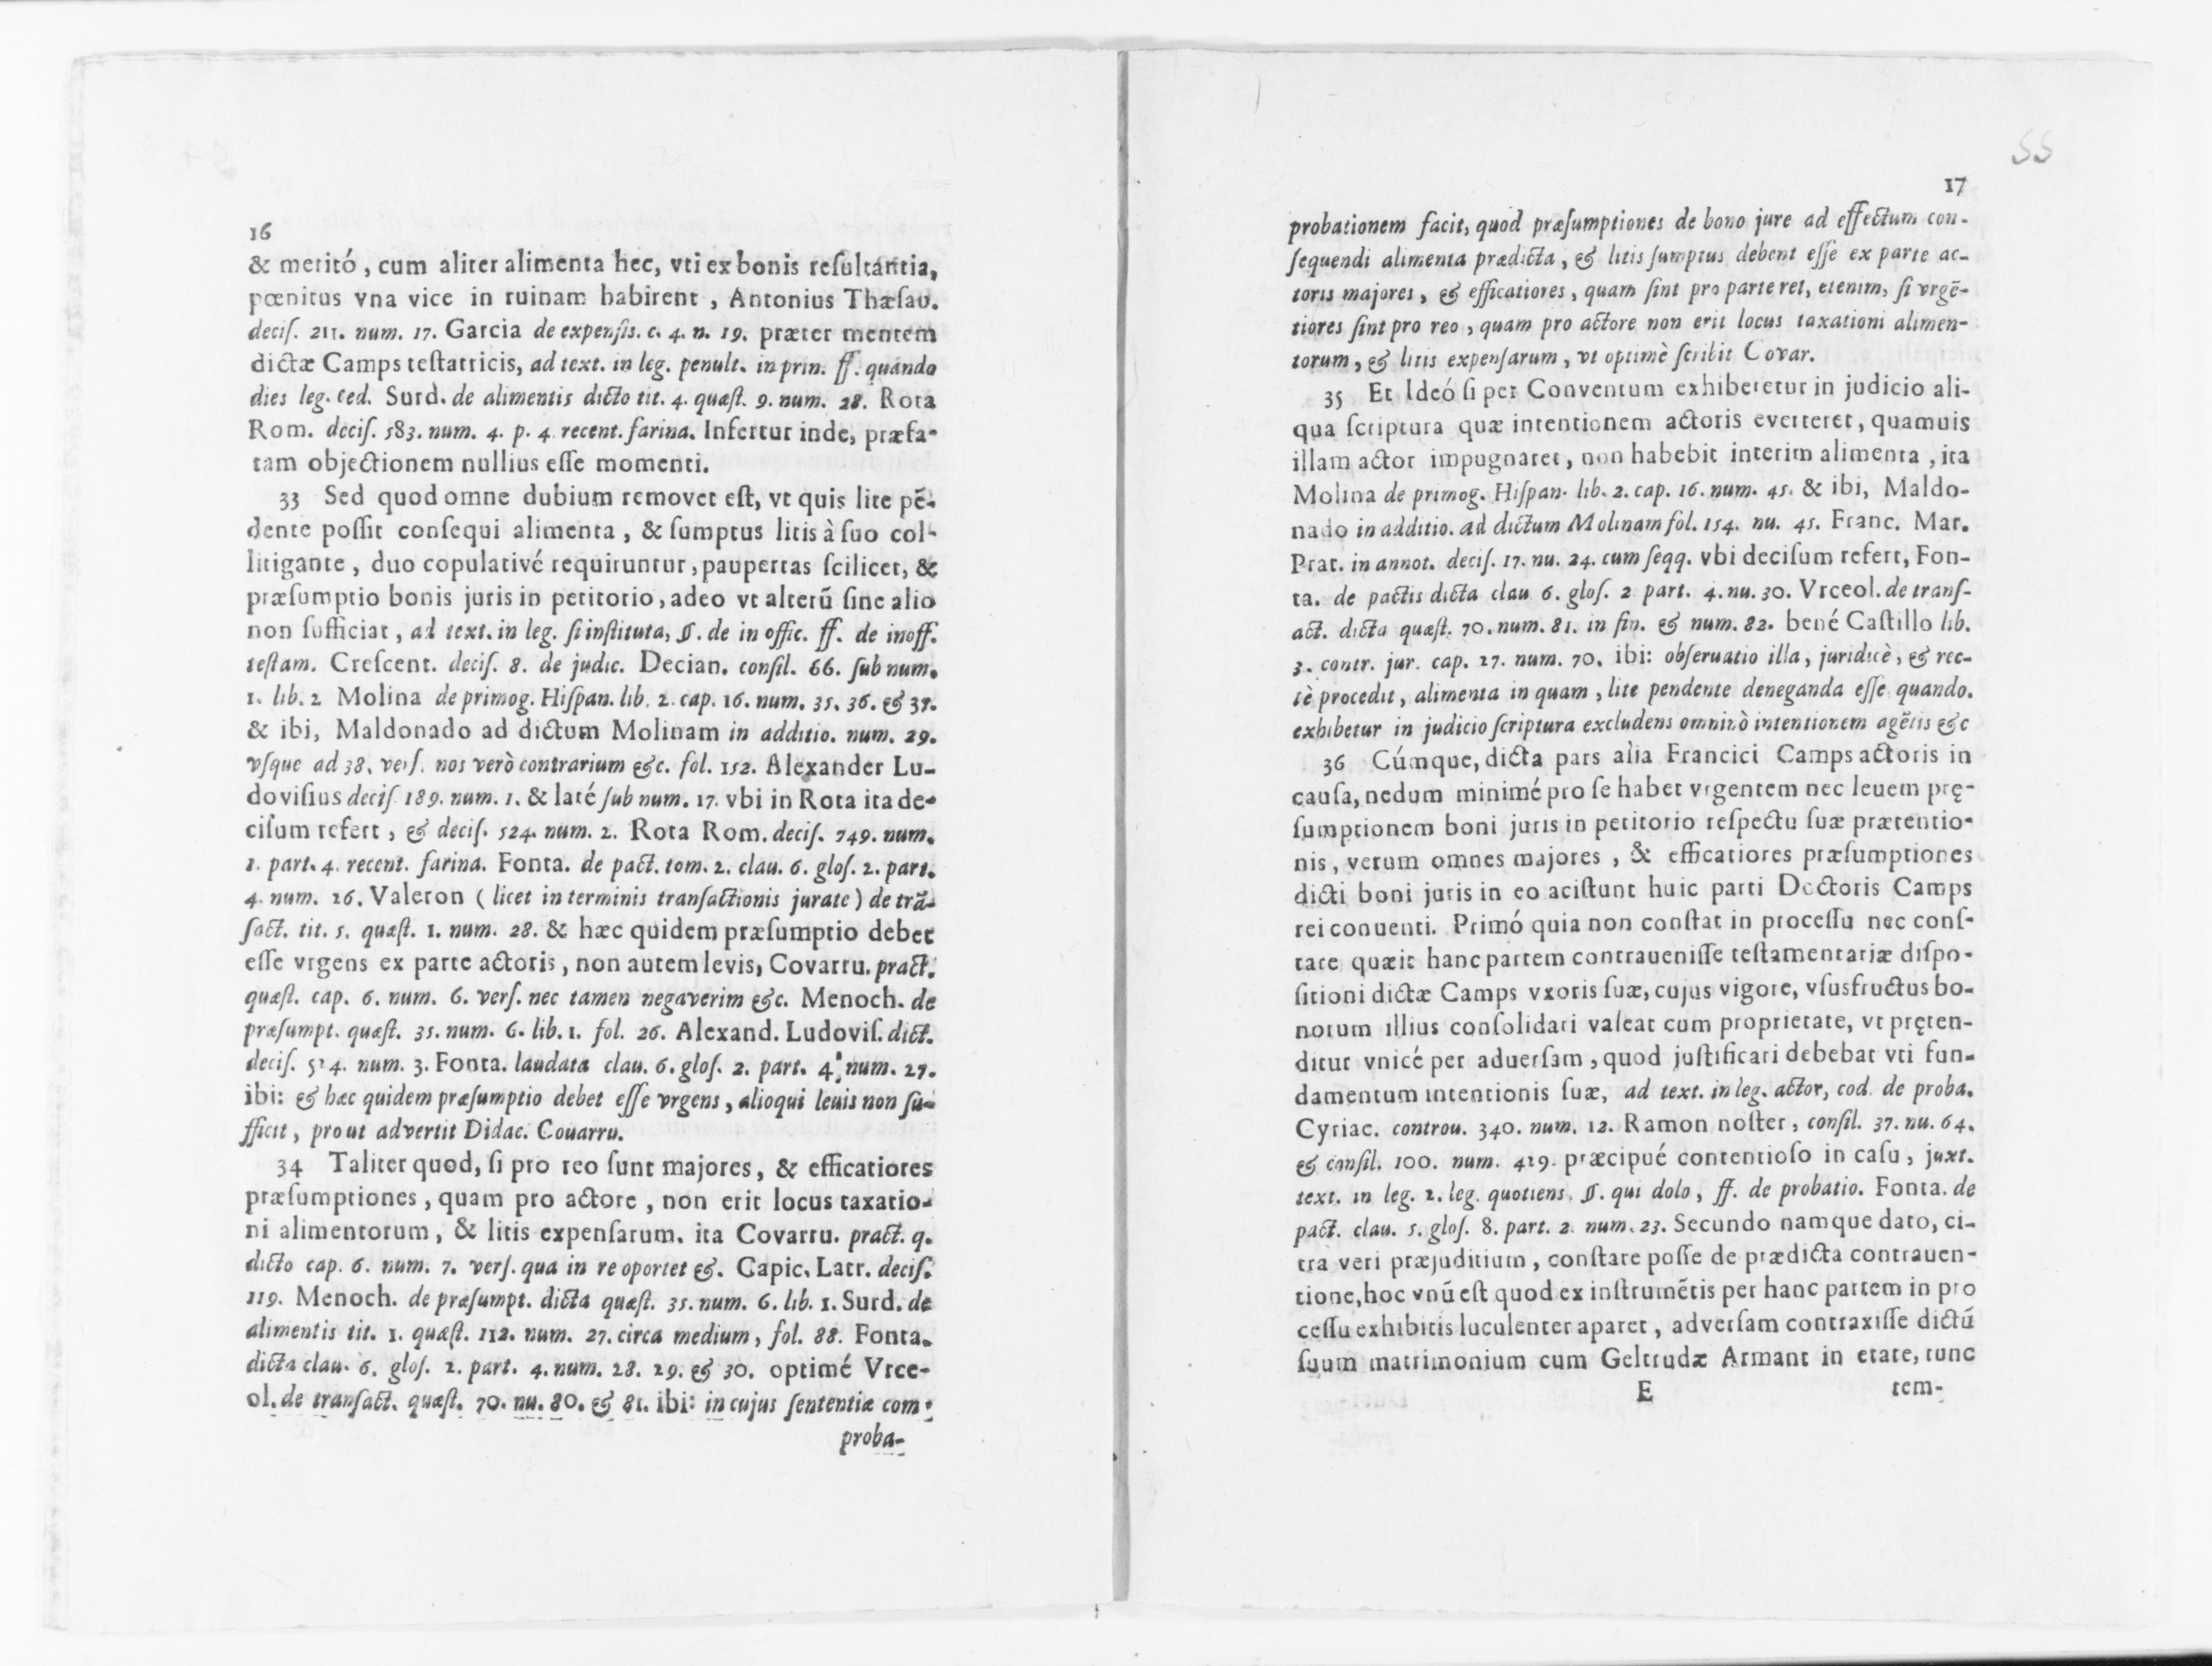 16
& meritó, cum aliter alimenta hec, vti ex bonis reſultantia,
pœnitus vna vice in ruinam habirent, Antonius Thæſau.
deciſ. 211. num. 17. Garcia de expenſis. c. 4. n. 19. præter mentem
dictæ Camps teſtatricis, ad text. in leg. penult. in prin. ff. quando
dies leg. ced. Surd. de alimentis dicto tit. 4. quæſt. 9. num. 28. Rota
Rom. deciſ. 583. num. 4. p. 4. recent. farina. Infertur inde, præfa-
tam objectionem nullius eſſe momenti.
33 Sed quod omne dubium removet eſt, vt quis lite pẽ-
dente poſſit conſequi alimenta, & ſumptus litis à ſuo col-
litigante, duo copulativé requiruntur, paupertas ſcilicet, &
præſumptio bonis juris in petitorio, adeo vt alterũ ſine alio
non ſufficiat, ad text. in leg. ſi inſtituta, §. de in offic. ff. de inoff.
teſtam. Creſcent. deciſ. 8. de judic. Decian. conſil. 66. ſub num.
1. lib. 2 Molina de primog. Hiſpan. lib. 2. cap. 16. num. 35. 36. & 37.
& ibi, Maldonado ad dictum Molinam in additio. num. 29.
vſque ad 38. verſ. nos verò contrarium &c. fol. 152. Alexander Lu-
doviſius deciſ. 189. num. 1. & laté ſub num. 17. vbi in Rota ita de-
ciſum refert, & deciſ. 524. num. 2. Rota Rom. deciſ. 749. num.
1. part. 4. recent. farina. Fonta. de pact. tom. 2. clau. 6. gloſ. 2. part.
4. num. 26. Valeron ( licet in terminis tranſactionis jurate) de trã-
ſact. tit. 5. quæſt. 1. num. 28. & hæc quidem præſumptio debet
eſſe vrgens ex parte actoris, non autem levis, Covarru. pract.
quæſt. cap. 6. num. 6. verſ. nec tamen negaverim &c. Menoch. de
præſumpt. quæſt. 35. num. 6. lib. 1. fol. 26. Alexand. Ludoviſ. dict.
deciſ. 524. num. 3. Fonta. laudata clau. 6. gloſ. 2. part. 4. num. 27.
ibi: & hæc quidem præſumptio debet eſſe vrgens, alioqui leuis non ſu-
fficit, prout advertit Didac. Couarru.
34 Taliter quod, ſi pro reo ſunt majores, & efficatiores
præſumptiones, quam pro actore, non erit locus taxatio-
ni alimentorum, & litis expenſarum. ita Covarru. pract. q.
dicto cap. 6. num. 7. verſ. qua in re oportet &. Capic. Latr. deciſ.
119. Menoch. de præſumpt. dicta quæſt. 35. num. 6. lib. 1. Surd. de
alimentis tit. 1. quæſt. 112. num. 27. circa medium, fol. 88. Fonta.
dicta clau. 6. gloſ. 2. part. 4. num. 28. 29. & 30. optimé Vrce-
ol. de tranſact. quæſt. 70. nu. 80. & 81. ibi: in cujus ſententiæ com-
proba-
55
17
probationem facit, quod præſumptiones de bono jure ad effectum con-
ſequendi alimenta prædicta, & litis ſumptus debent eſſe ex parte ac-
toris majores, & efficatiores, quam ſint pro parte rei, etenim, ſi vrgẽ-
tiores ſint pro reo, quam pro actore non erit locus taxationi alimen-
torum, & litis expenſarum, vt optimè ſcribit Covar.
35 Et Ideó ſi per Conventum exhiberetur in judicio ali-
qua ſcriptura quæ intentionem actoris everteret, quamuis
illam actor impugnaret, non habebit interim alimenta, ita
Molina de primog. Hiſpan. lib. 2. cap. 16. num. 45. & ibi, Maldo-
nado in additio. ad dictum Molinam fol. 154. nu. 45. Franc. Mar.
Prat. in annot. deciſ. 17. nu. 24. cum ſeqq. vbi deciſum refert, Fon-
ta. de pactis dicta clau 6. gloſ. 2 part. 4. nu. 30. Vrceol. de tranſ-
act. dicta quæſt. 70. num. 81. in fin. & num. 82. bené Caſtillo lib.
3. contr. jur. cap. 27. num. 70. ibi: obſeruatio illa, juridicè, & rec-
tè procedit, alimenta in quam, lite pendente deneganda eſſe quando.
exhibetur in judicio ſcriptura excludens omninò intentionem agẽtis &c
36 Cúmque, dicta pars alia Francici Camps actoris in
cauſa, nedum minimé pro ſe habet vrgentem nec leuem prę-
ſumptionem boni juris in petitorio reſpectu ſuæ prætentio-
nis, verum omnes majores, & efficatiores præſumptiones
dicti boni juris in eo aciſtunt huic parti Doctoris Camps
rei conuenti. Primó quia non conſtat in proceſſu nec conſ-
tare quæit hanc partem contraueniſſe teſtamentariæ diſpo-
ſitioni dictæ Camps vxoris ſuæ, cujus vigore, vſusfructus bo-
norum illius conſolidari valeat cum proprietate, vt pręten-
ditur vnicé per aduerſam, quod juſtificari debebat vti fun-
damentum intentionis ſuæ, ad text. in leg. actor, cod. de proba.
Cyriac. controu. 340. num. 12. Ramon noſter, conſil. 37. nu. 64.
& conſil. 100. num. 429. præcipué contentioſo in caſu, juxt.
text. in leg. 2. leg. quotiens. §. qui dolo, ff. de probatio. Fonta. de
pact. clau. 5. gloſ. 8. part. 2. num. 23. Secundo namque dato, ci-
tra veri præjuditium, conſtare poſſe de prædicta contrauen-
tione, hoc vnũ eſt quod ex inſtrumẽtis per hanc partem in pro
ceſſu exhibitis luculenter aparet, adverſam contraxiſſe dictũ
ſuum matrimonium cum Geltrudæ Armant in etate, tunc
E tem-